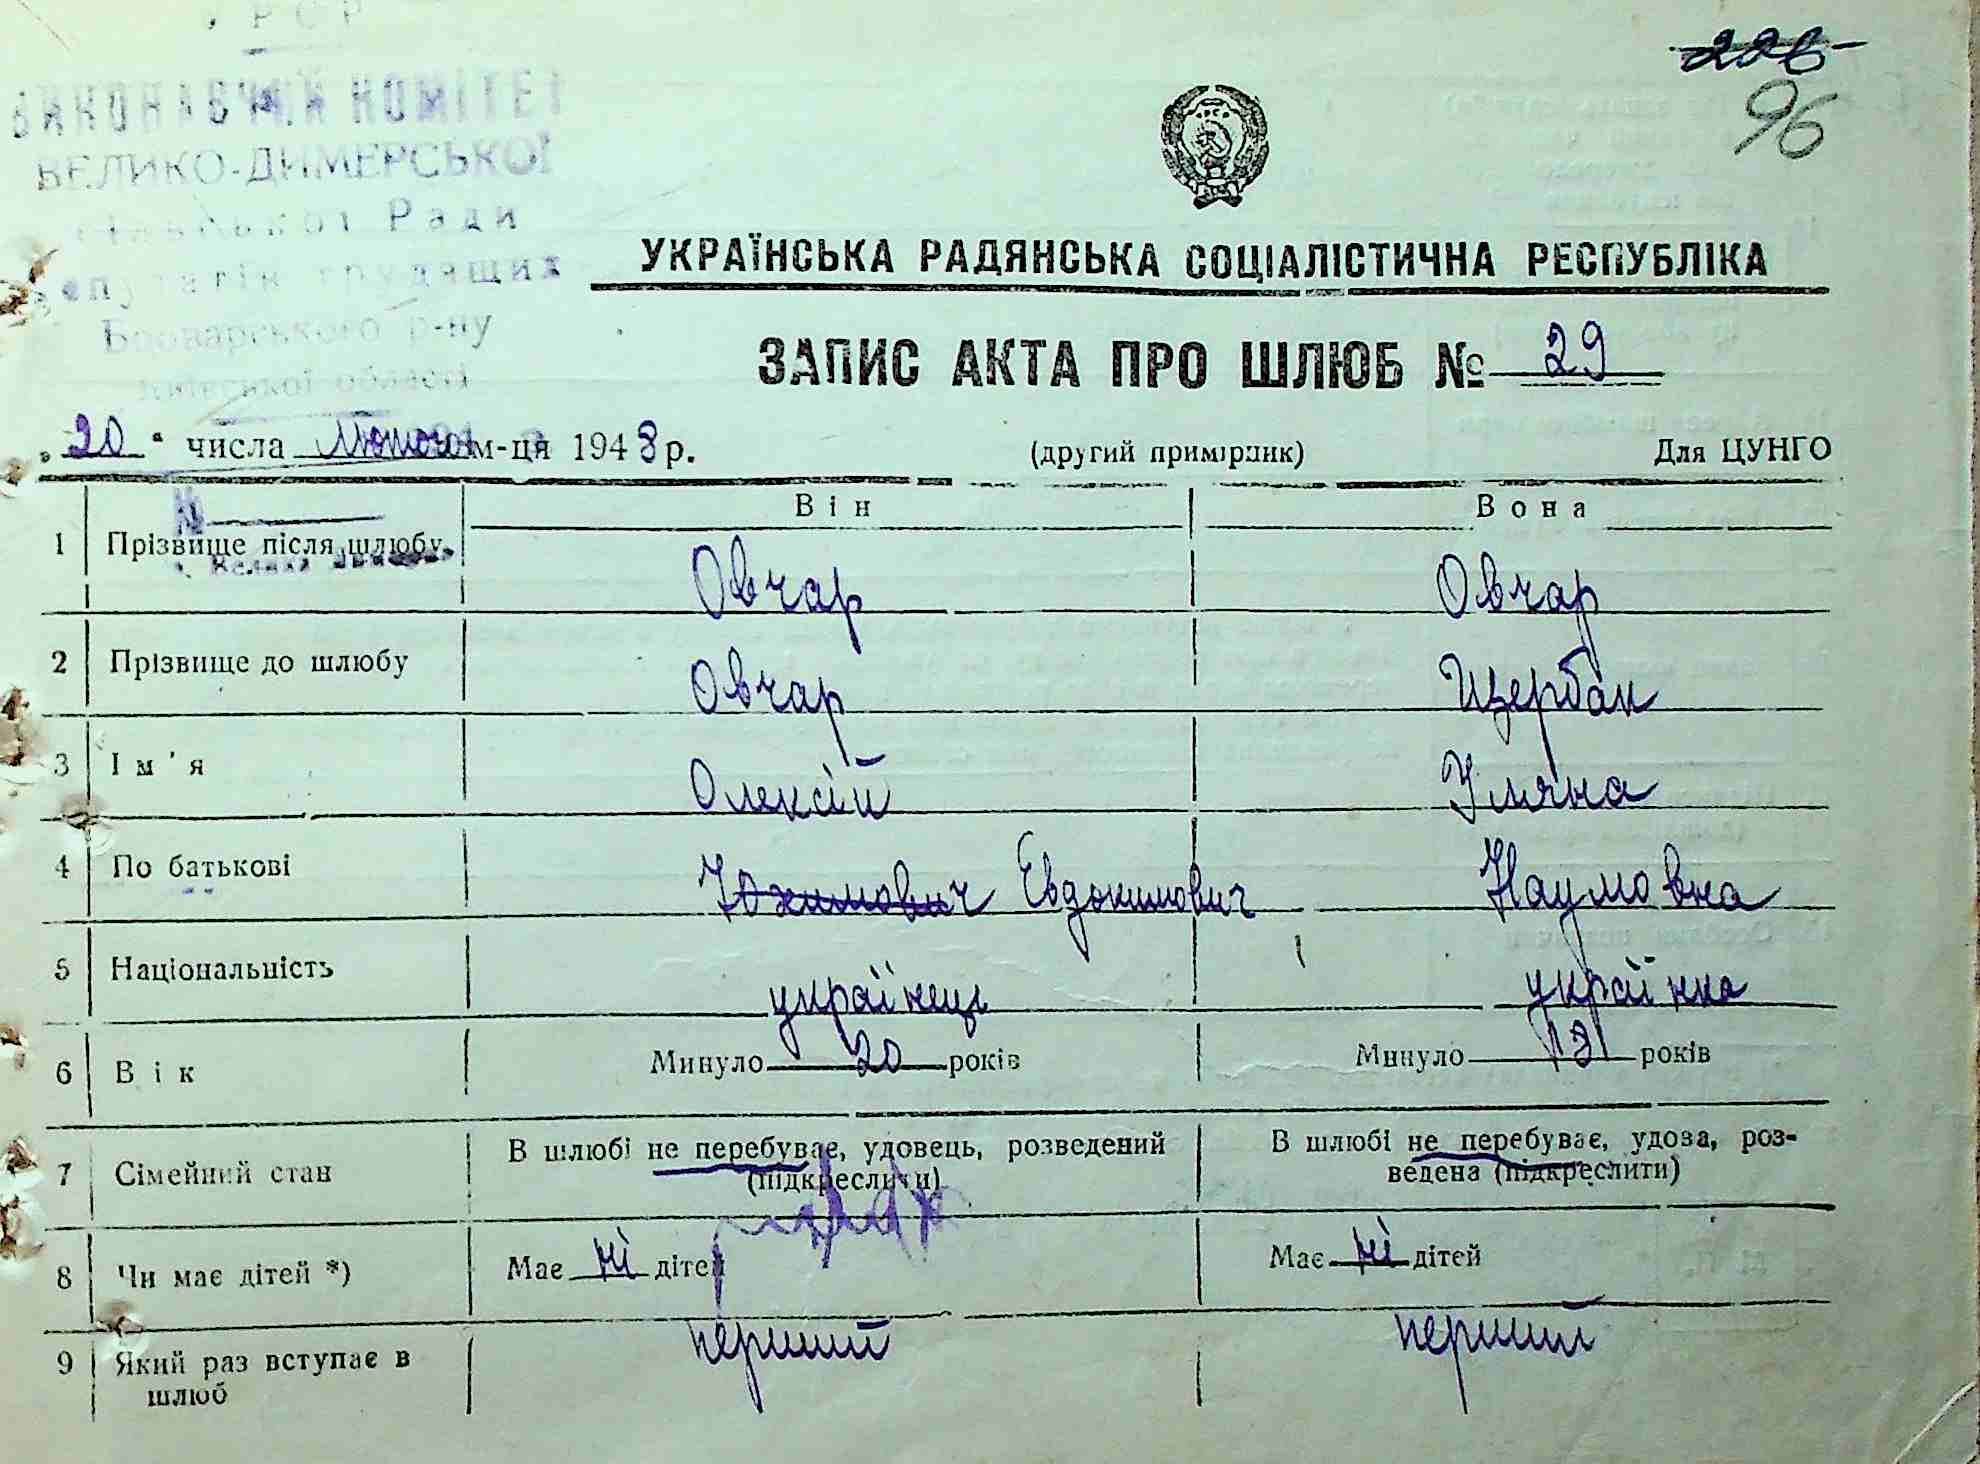 РСР
ВИКОНАВЧИЙ КОМІТЕТ
ВЕЛИКО-ДИМЕРСЬКОЇ
сільської Ради
депутатів трудящих
Броварського р-ну
Київської області
226
96
УКРАЇНСЬКА РАДЯНСЬКА СОЦІАЛІСТИЧНА РЕСПУБЛІКА
ЗАПИС АКТА ПРО ШЛЮБ № 29
„20“ числа Лютого м-ця 1948 р. (другий примірник) Для ЦУНГО
№
Він Вона
1 Прізвище після шлюбу Овчар Овчар
с. Велика
2 Прізвище до шлюбу Овчар Щербак
3 Ім'я Олексій Уляна
4 По батькові Юхимович Евдокимович Наумовна
5 Національність українець українка
6 Вік Минуло 20 років Минуло 21 років
7 Сімейний стан В шлюбі не перебуває, удовець, розведений (підкреслити) В шлюбі не перебуває, удова, роз-
ведена (підкреслити)
8 Чи має дітей *) Має ні дітей Має ні дітей
9 Який раз вступає в шлюб перший перший